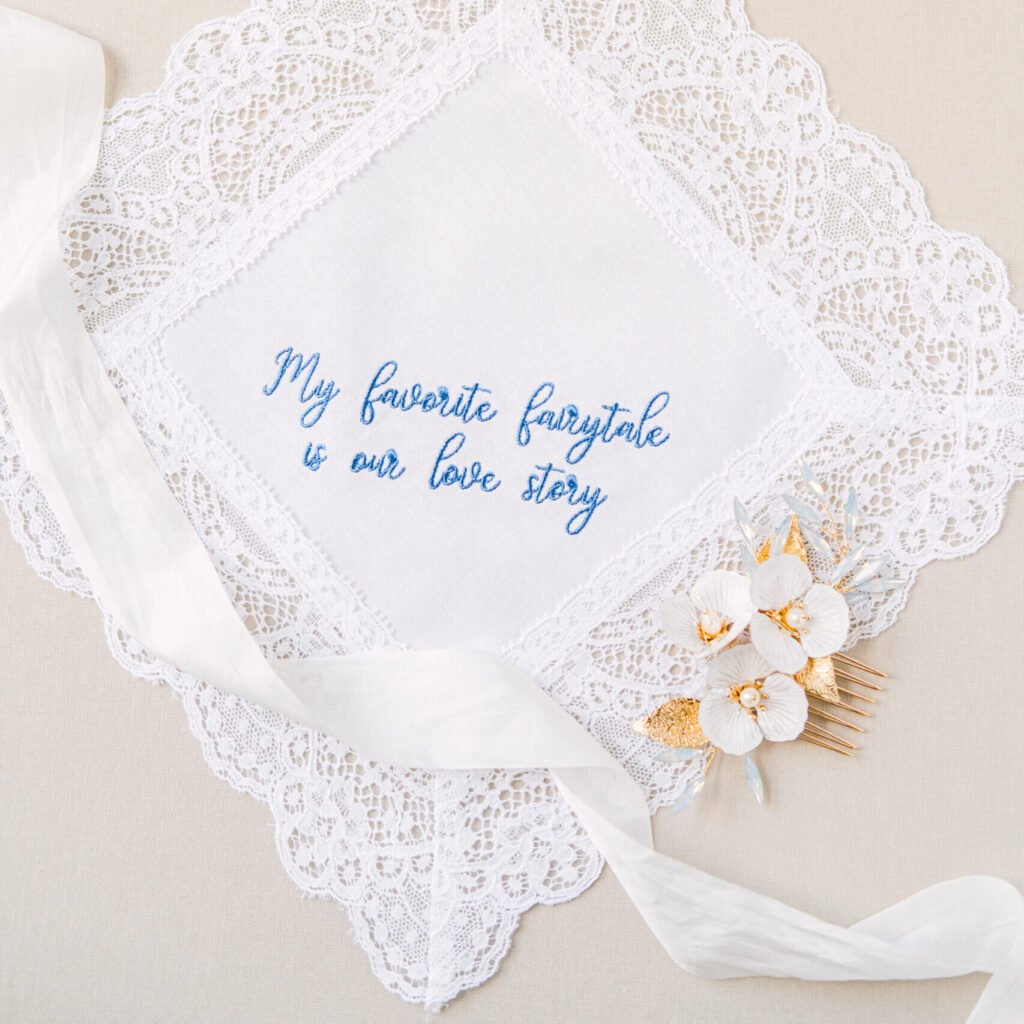 My favorite fairytale
is our love story